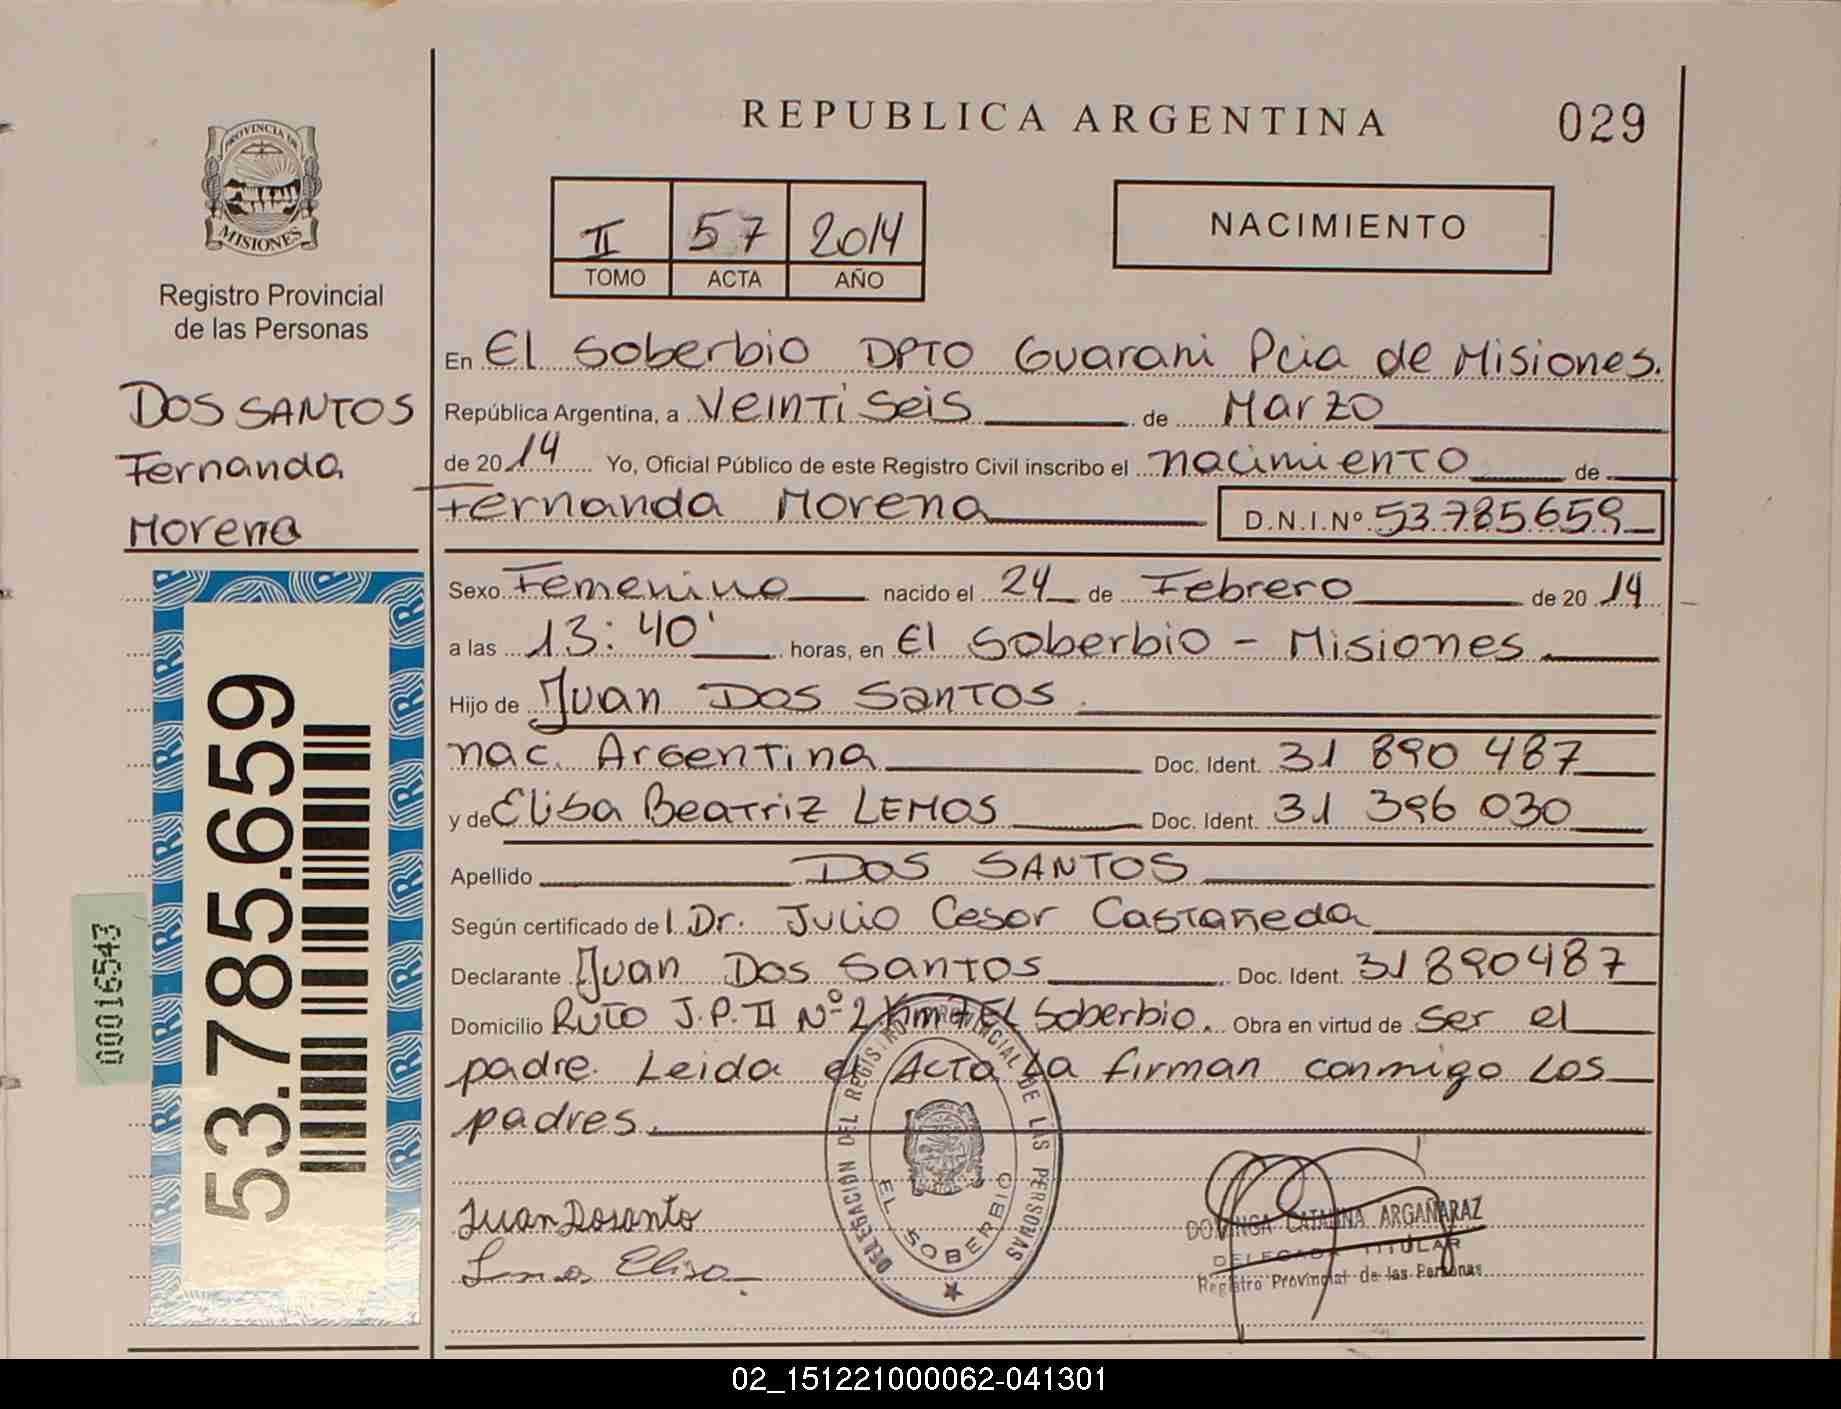 REPUBLICA ARGENTINA
029
PROVINCIA DE
MISIONES
Registro Provincial
de las Personas
II 57 2014
TOMO ACTA AÑO
NACIMIENTO
DOS SANTOS
Fernanda
Morena
En El Soberbio DPTO Guarani Pcia de Misiones.
República Argentina, a Veinti Seis de Marzo
de 2014 Yo, Oficial Público de este Registro Civil inscribo el nacimiento de
Fernanda Morena D.N.I.Nº 53785659
Sexo Femenino nacido el 24 de Febrero de 2014
a las 13:40' horas, en El Soberbio - Misiones
Hijo de Juan Dos Santos
nac. Argentina Doc. Ident. 31 890 487
y de Elisa Beatriz LEMOS Doc. Ident. 31 396 030
Apellido DOS SANTOS
Según certificado de l Dr. Julio Cesar Castañeda
Declarante Juan Dos Santos Doc. Ident. 31890487
Domicilio Ruta J.P. II Nº 2 Km 7 El Soberbio. Obra en virtud de ser el
padre. Leida el Acta La firman conmigo Los
padres.
53.785.659
00016543
Juan Dosanto
Elisa
DELEGACIÓN DEL REGISTRO PROVINCIAL DE LAS PERSONAS
EL SOBERBIO
DOMINGA CATALINA ARGAÑARAZ
DELEGADA TITULAR
Registro Provincial de las Personas
02_151221000062-041301